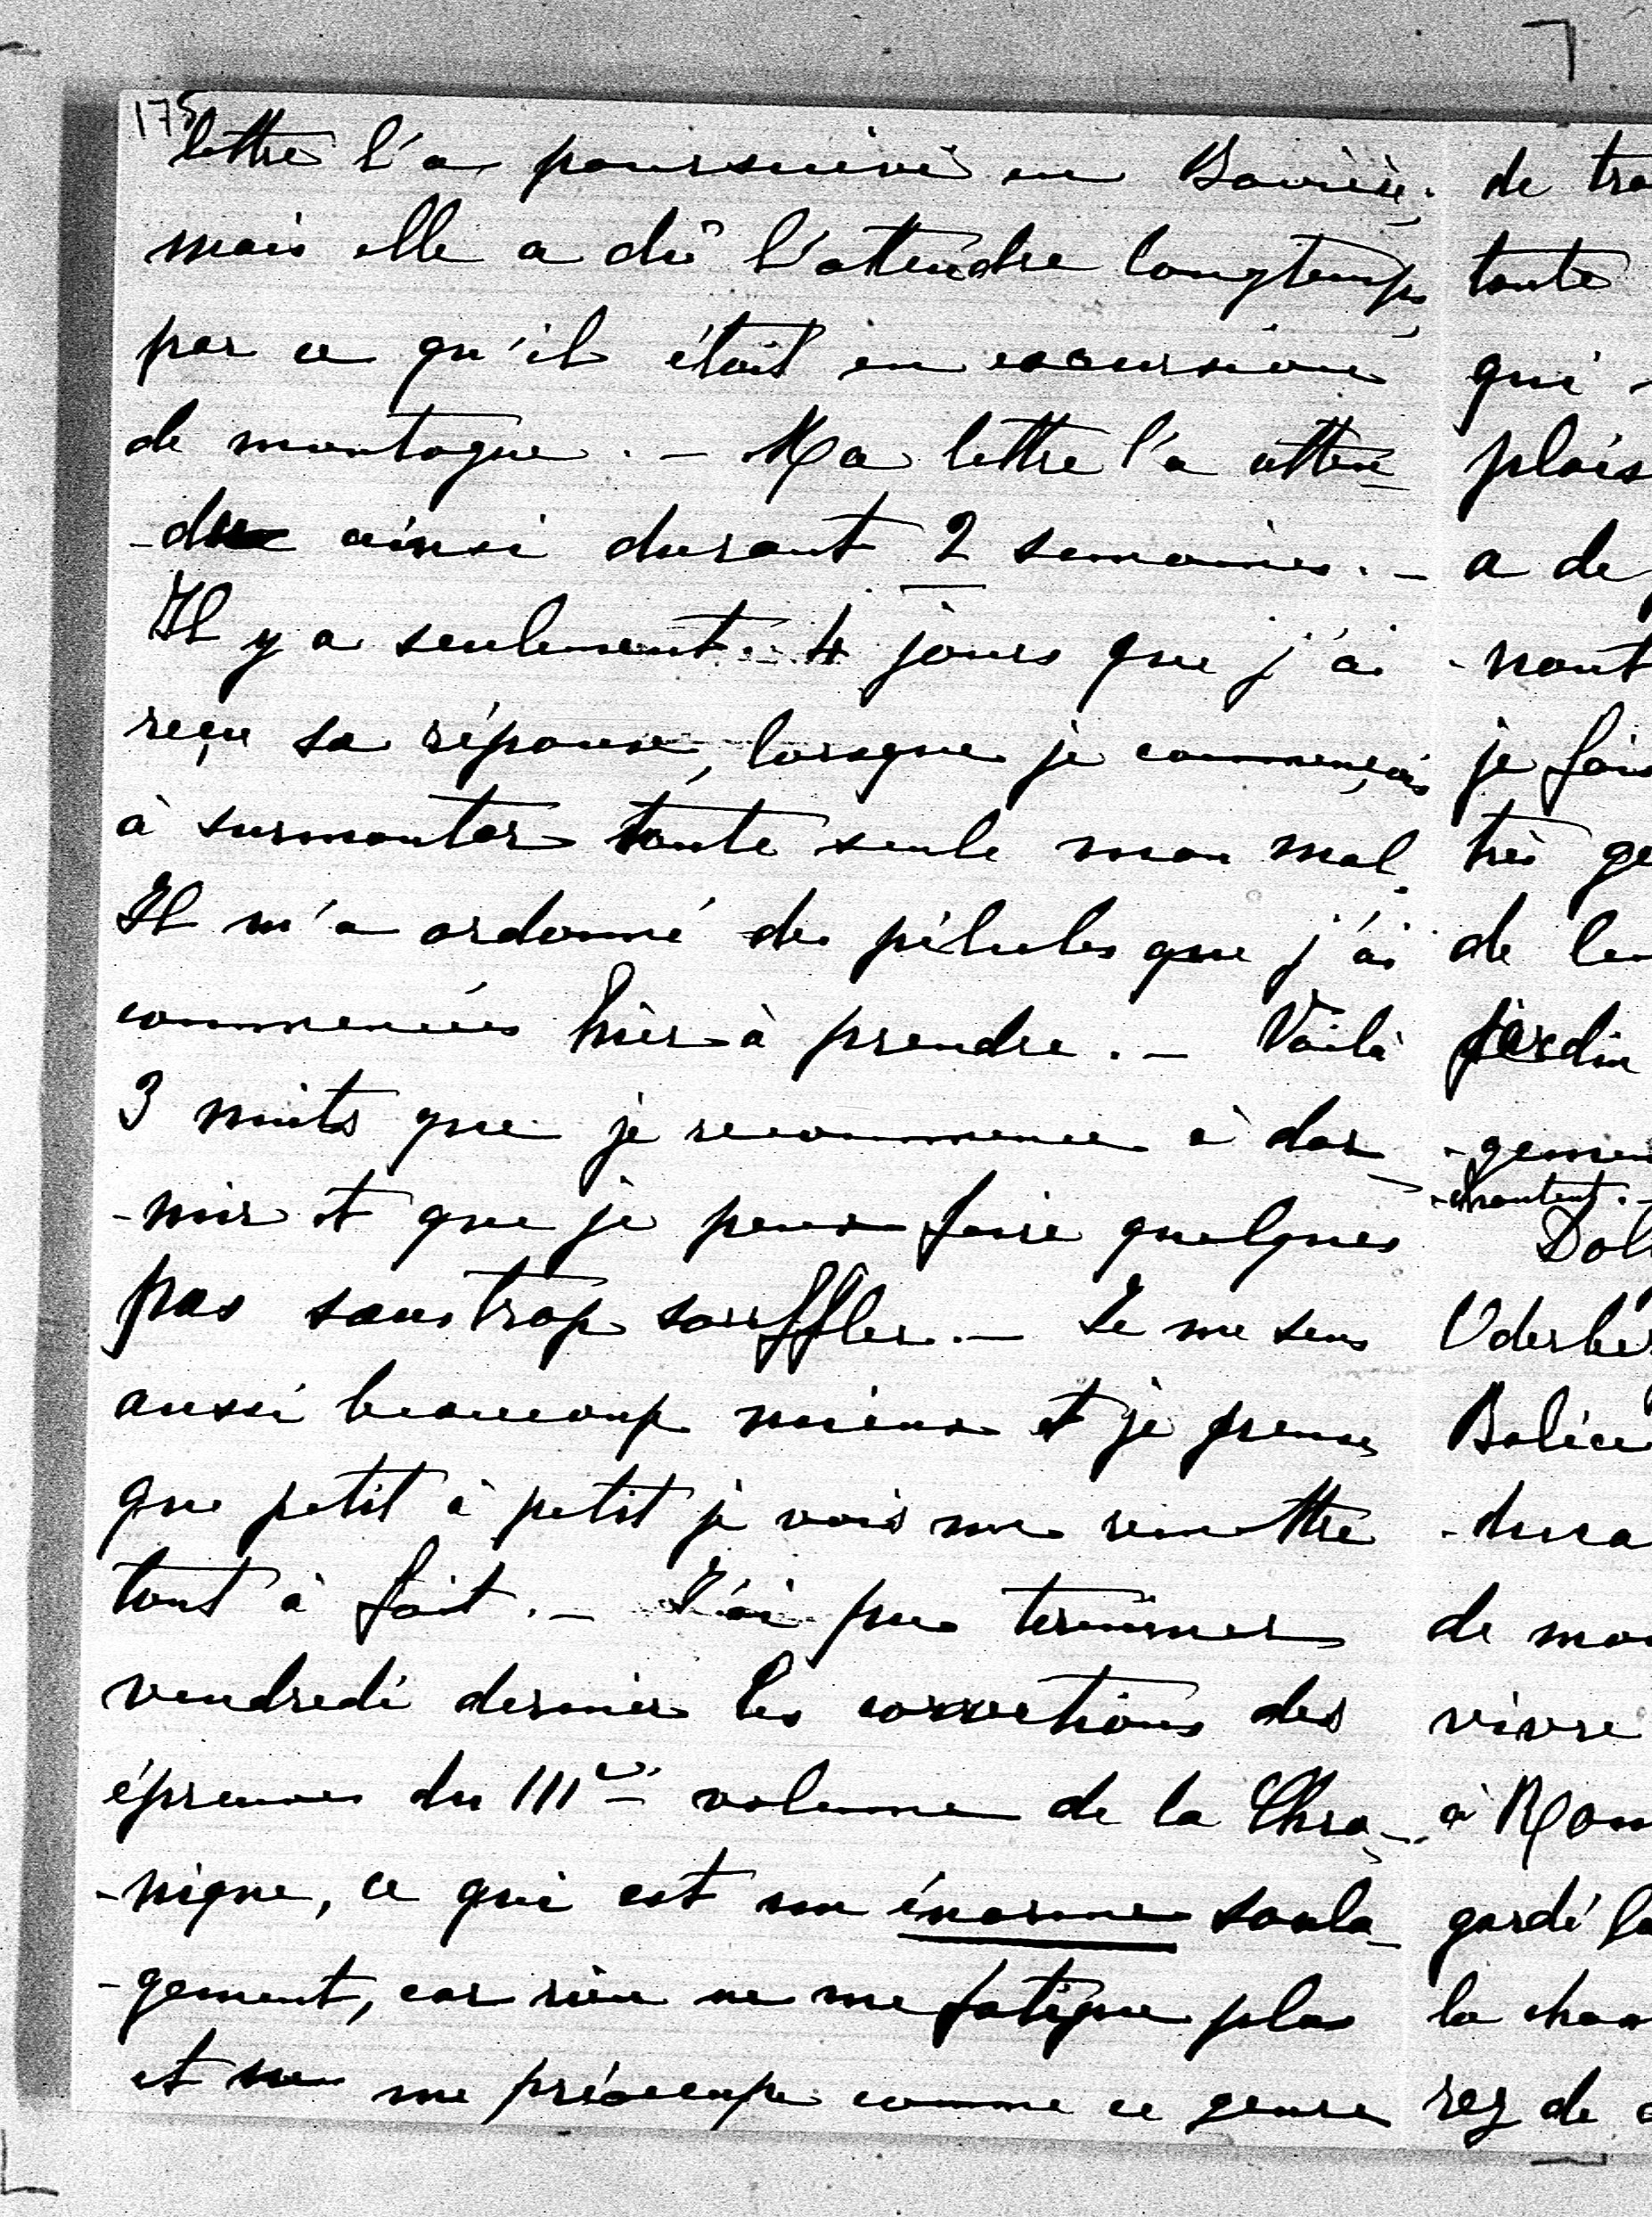 175
lettre l'a poursuivi en Bavière;
mais elle a dû l'attendre longtemps,
par ce qu'il était en excursion
de montagne. — Ma lettre l'a atten-
-due ainsi durant 2 semaines. —
Il y a seulement 4 jours que j'ai
reçu sa réponse, lorsque je commençais
à surmonter toute seule mon mal.
Il m'a ordonné des pilules que j'ai
commencées hier à prendre. — Voilà
3 nuits que je recommence à dor-
-mir et que je peux faire quelques
pas sans trop souffler. — Je me sens
aussi beaucoup mieux et je pense
que petit à petit je vais me remettre
tout à fait. — J'ai pu terminer
vendredi dernier les corrections des
épreuves du IIIe volume de la Chro-
-nique, ce qui est un énorme soula-
-gement, car rien ne me fatigue plus
et ne me préoccupe comme ce genre
de tra
toute
qui
plais
a de
-nant
je fais
très ge
de le
jardin
-geme
-montent. —
Dol
Oderber
Balici
-dura
de mo
vivre
à Rom
gardé la
la cham
rez de c